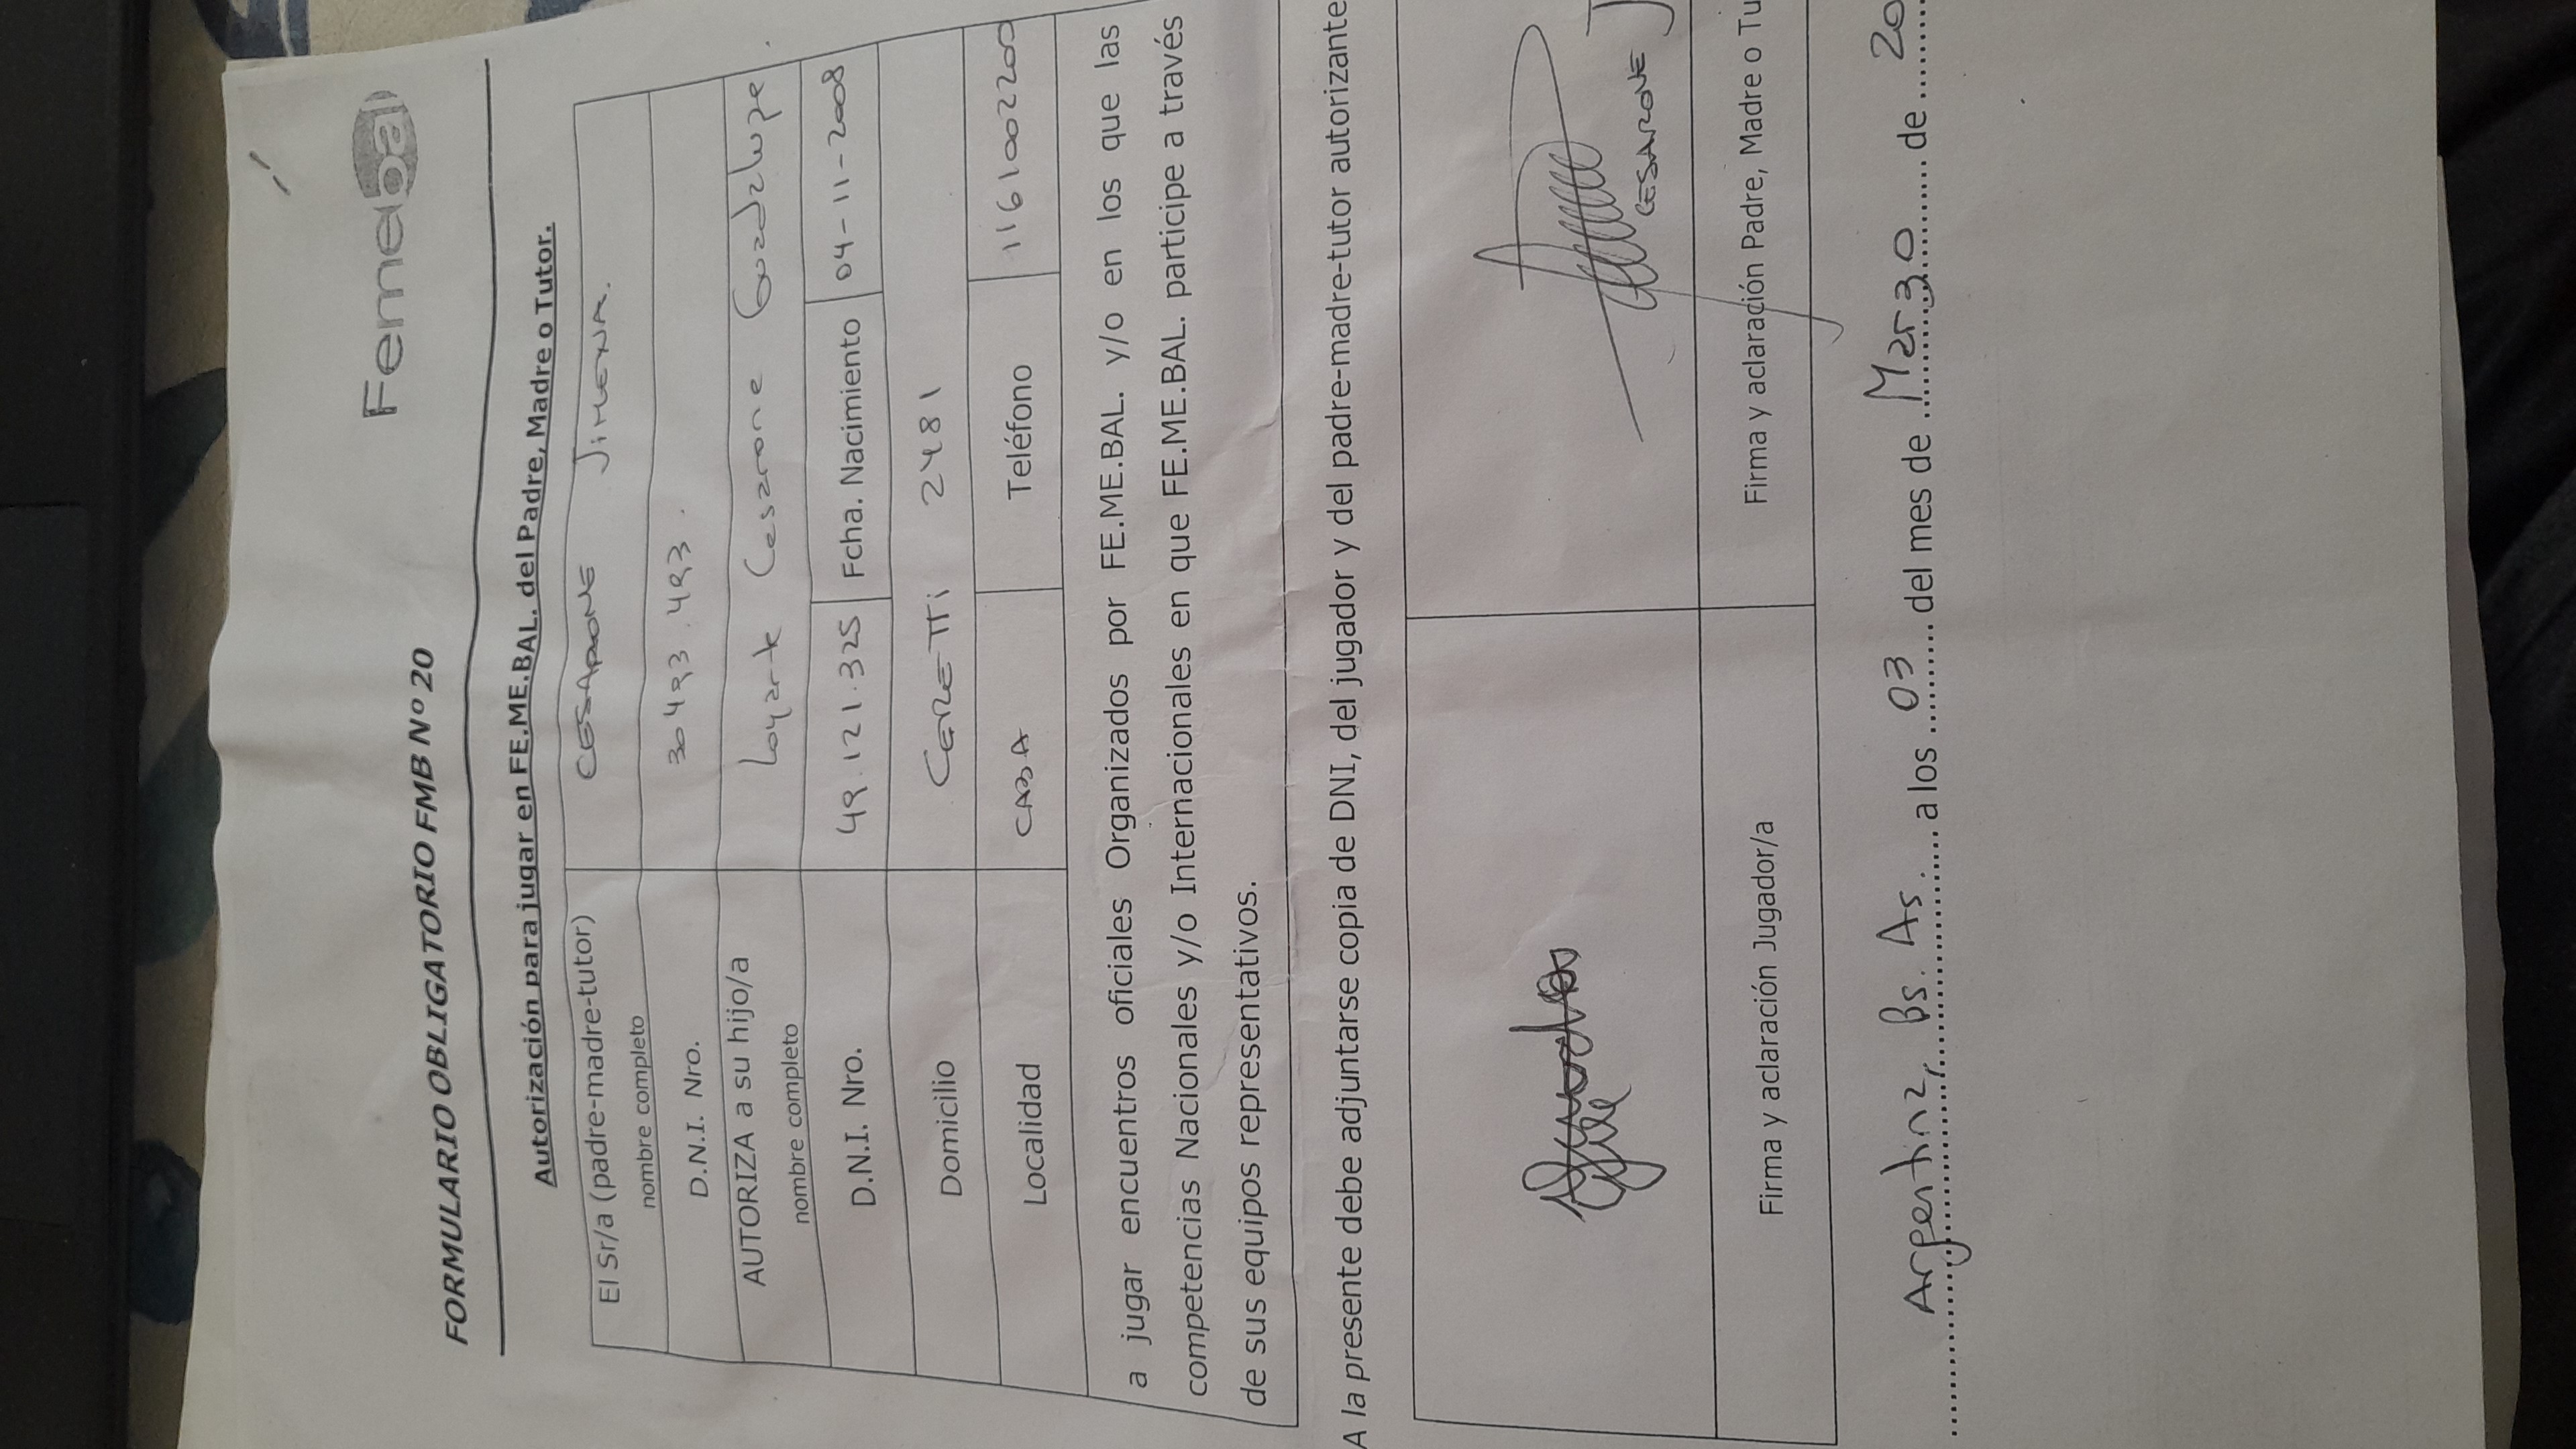 Femebal
FORMULARIO OBLIGATORIO FMB Nº 20
Autorización para jugar en FE.ME.BAL. del Padre, Madre o Tutor.
El Sr/a (padre-madre-tutor) nombre completo CESARONE JIMENA.
D.N.I. Nro. 30493.493.
AUTORIZA a su hijo/a nombre completo Loyarte Cesarone Guadalupe
D.N.I. Nro. 49.121.325 Fcha. Nacimiento 04-11-2008
Domicilio CERETTI 2481
Localidad CABA Teléfono 1161002200
a jugar encuentros oficiales Organizados por FE.ME.BAL. y/o en los que las
competencias Nacionales y/o Internacionales en que FE.ME.BAL. participe a través
de sus equipos representativos.
A la presente debe adjuntarse copia de DNI, del jugador y del padre-madre-tutor autorizante
CESARONE J
Firma y aclaración Jugador/a Firma y aclaración Padre, Madre o Tu
Argentina, Bs. As. a los 03 del mes de Marzo de 20